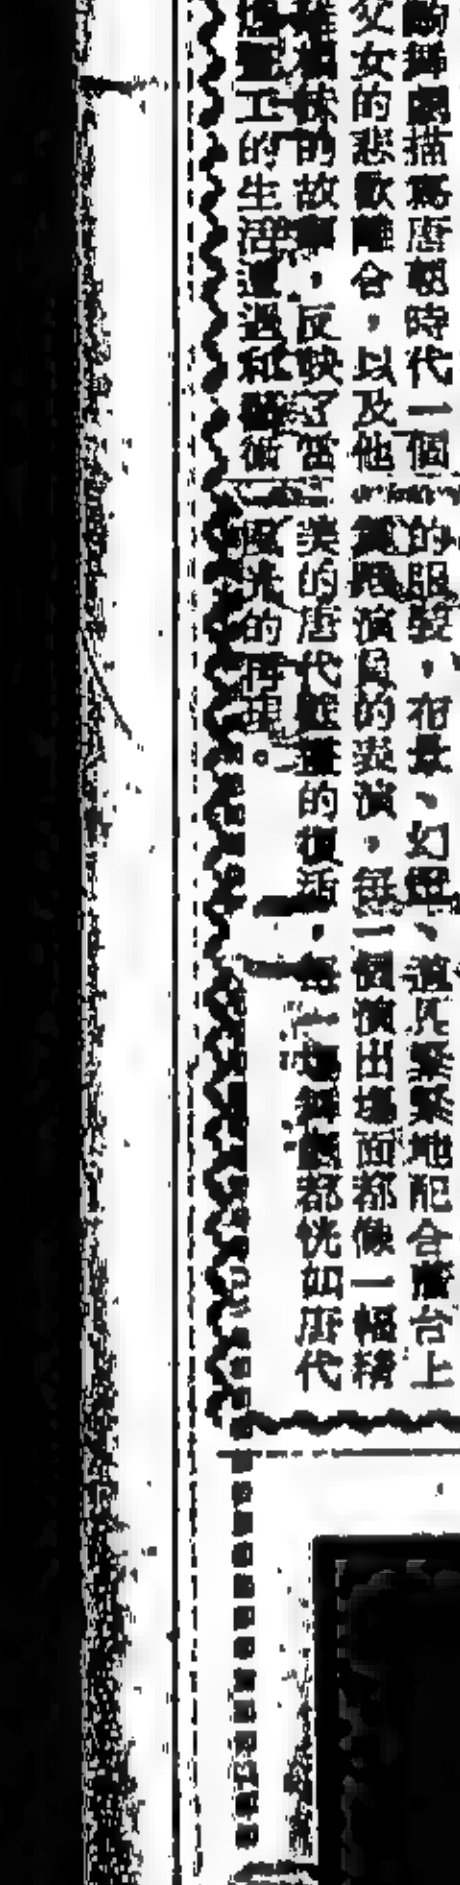 動舞劇描寫唐朝時代一個
父女的悲歡離合，以及他
的故事，反映了當
工的生活遭遇和藝術
的服裝，布景、幻燈、道具緊緊地配合舞台上
演員的表演，每一個演出場面都像一幅精
美的唐代壁畫的復活，每一場舞劇都恍如唐代
風光的再現。